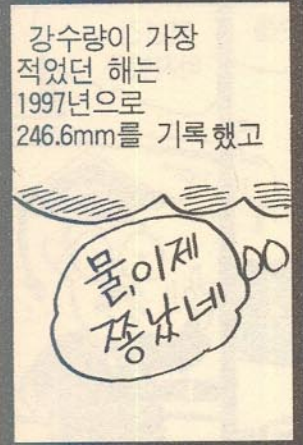 강수량이 가장
적었던 해는
1997년으로
246.6mm를 기록했고
물,이제
쫑났네